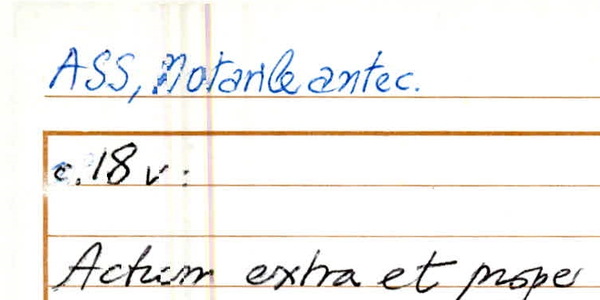 ASS, Notarile antec.
c. 18 v:
Actum extra et prope